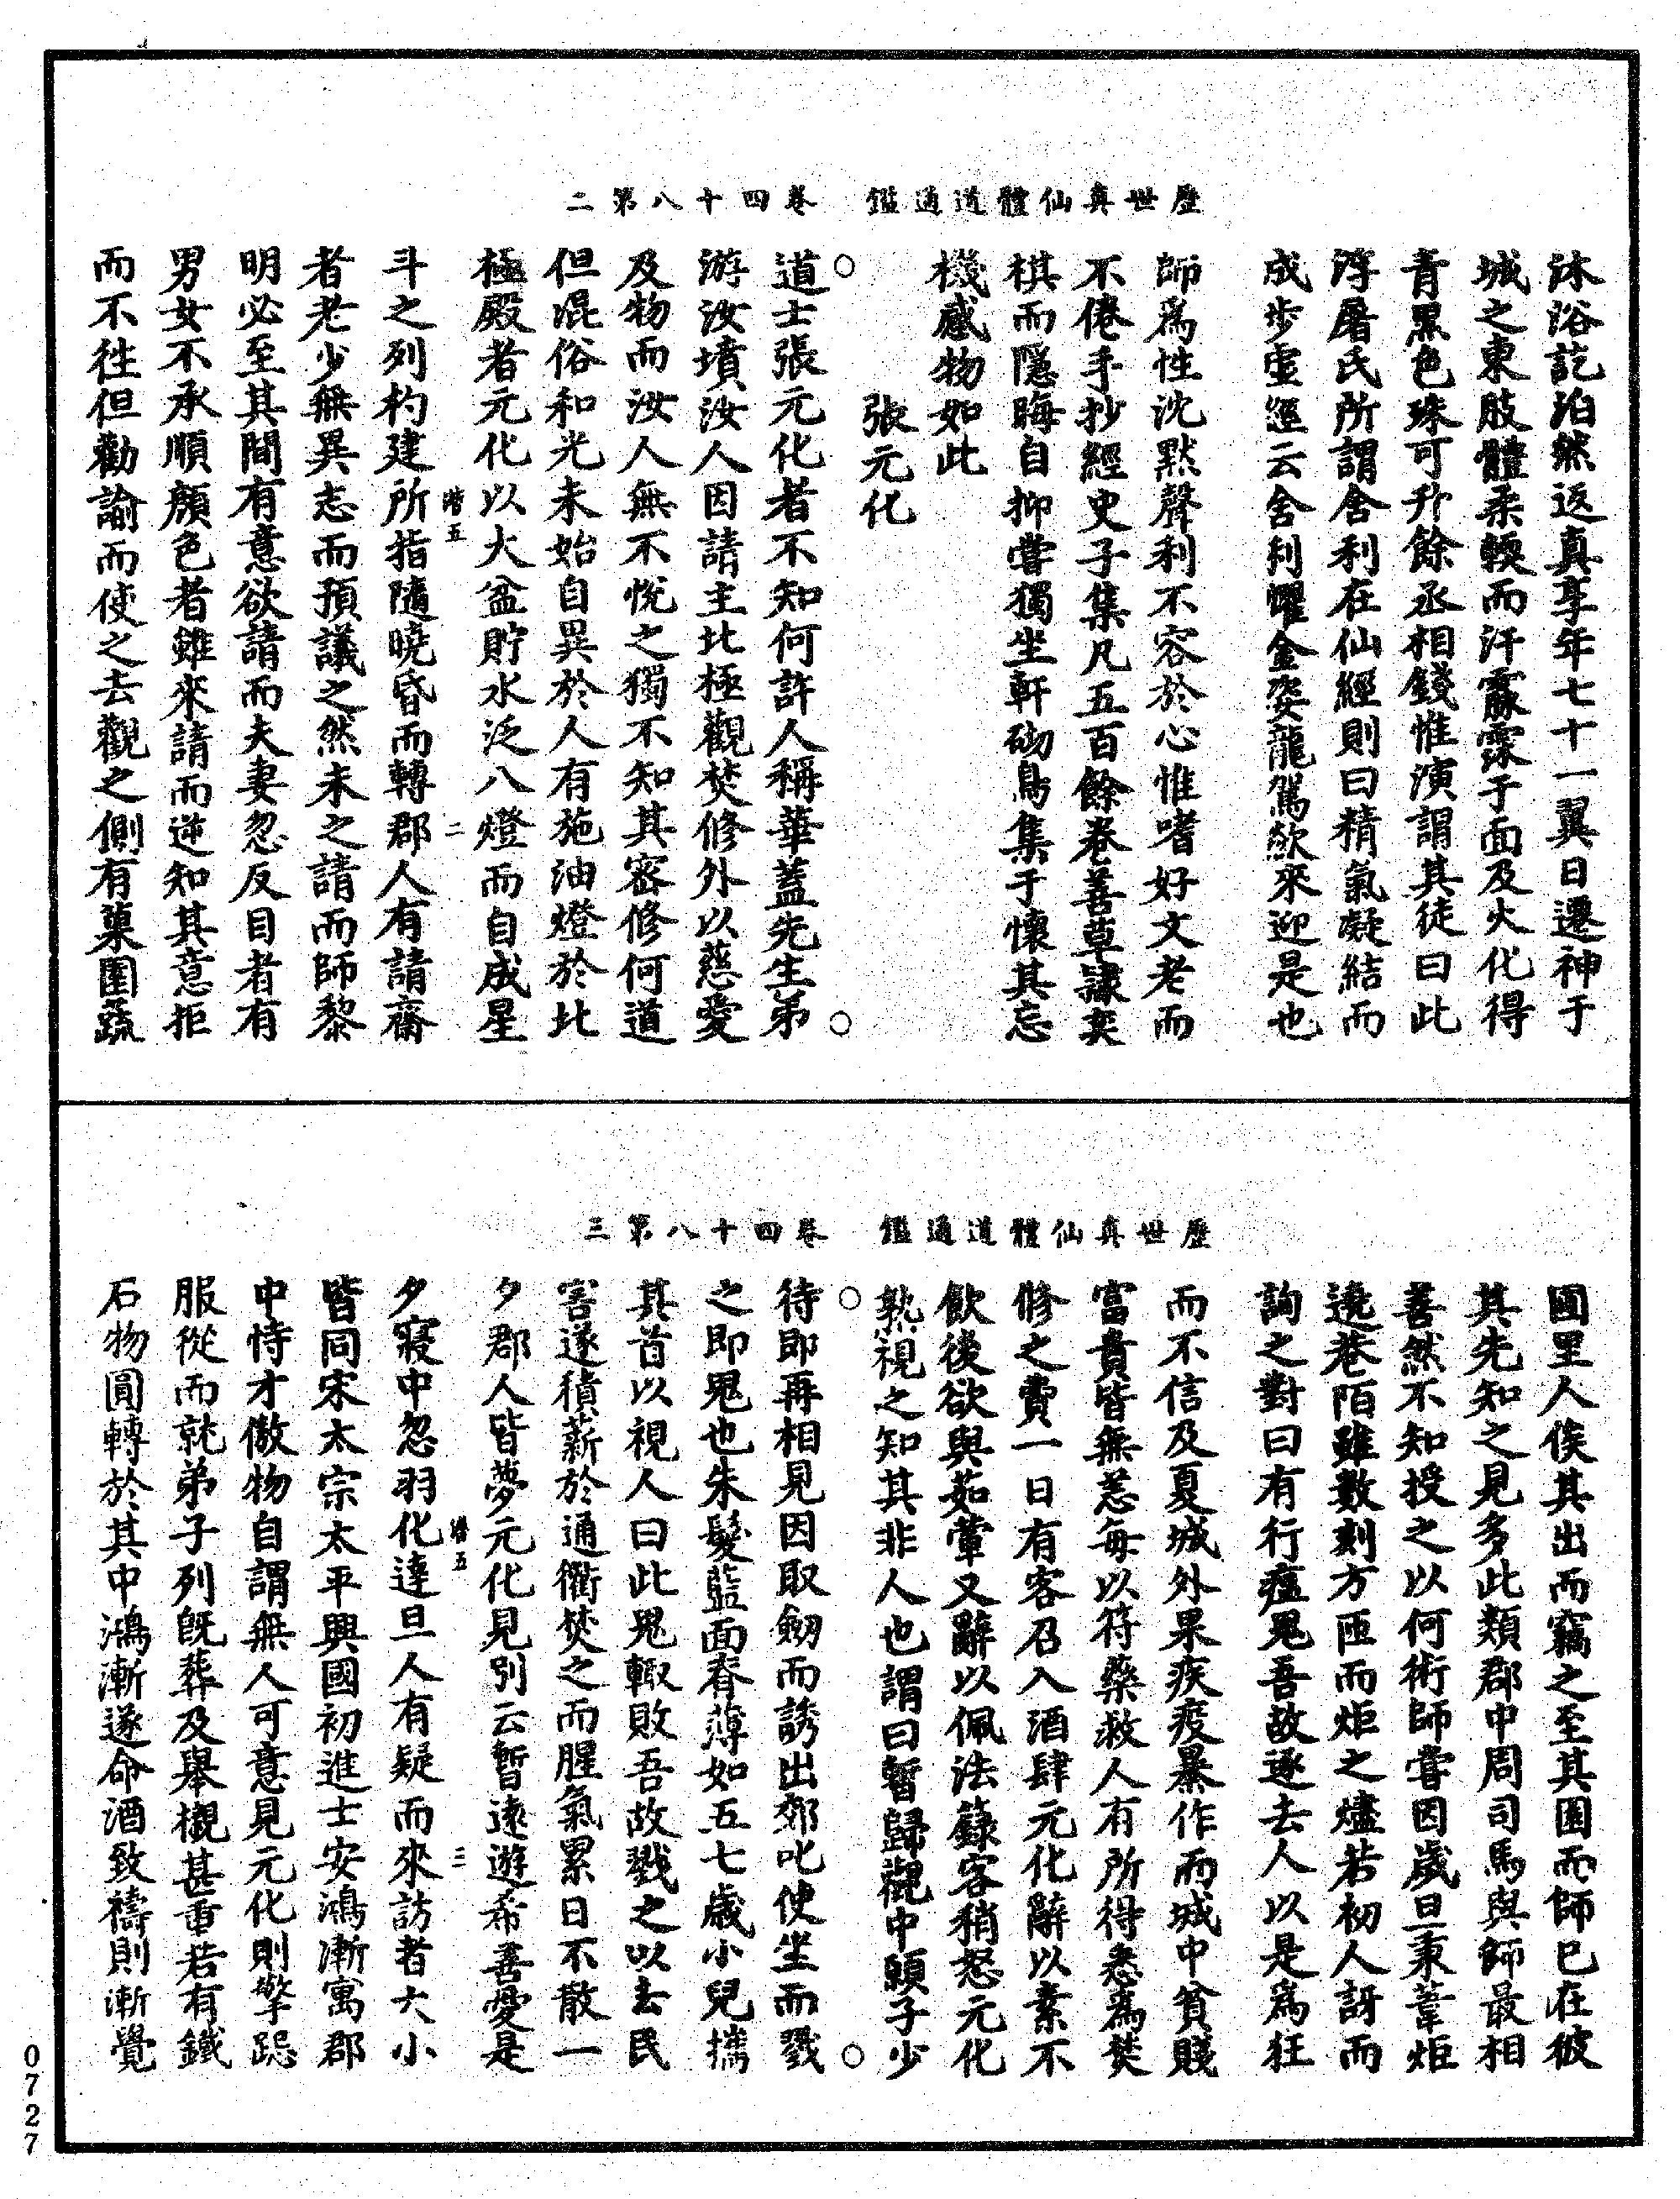 歷世真仙體道通鑑　卷四十八第二
沐浴訖泊然返真享年七十一翼日遷神于
城之東肢體柔輭而汗霡霂于面及火化得
青黑色珠可升餘丞相錢惟演謂其徒曰此
浮屠氏所謂舍利在仙經則曰精氣凝結而
成步虛經云舍利耀金姿龍駕欻來迎是也
師爲性沈默聲利不容於心惟嗜好文老而
不倦手抄經史子集凡五百餘卷善草隸奕
棋而隱晦自抑嘗獨坐軒砌鳥集于懷其忘
機感物如此
張元化
道士張元化者不知何許人稱華蓋先生弟
游汝墳汝人因請主北極觀焚修外以慈愛
及物而汝人無不悅之獨不知其密修何道
但混俗和光未始自異於人有施油燈於北
極殿者元化以大盆貯水泛八燈而自成星
斗之列杓建所指隨曉昏而轉郡人有請齋
者老少無異志而預議之然未之請而師黎
明必至其間有意欲請而夫妻忽反目者有
男女不承順顏色者雖來請而逆知其意拒
而不往但勸諭而使之去觀之側有菓園蔬
五
二
歷世真仙體道通鑑　卷四十八第三
圃里人俟其出而竊之至其園而師已在彼
其先知之見多此類郡中周司馬與師最相
善然不知授之以何術師嘗因歲旦秉葦炬
遶巷陌雖數刻方匝而炬之燼若初人訝而
詢之對曰有行瘟鬼吾故逐去人以是爲狂
而不信及夏城外果疾疫暴作而城中貧賤
富貴皆無恙每以符藥救人有所得悉爲焚
修之費一日有客召入酒肆元化辭以素不
飲後欲與茹葷又辭以佩法籙客稍怒元化
熟視之知其非人也謂曰暫歸觀中頤子少
待即再相見因取劒而誘出郊叱使坐而戮
之即鬼也朱髮藍面脊薄如五七歲小兒攜
其首以視人曰此鬼輙敗吾故戮之以去民
害遂積薪於通衢焚之而腥氣累日不散一
夕郡人皆夢元化見別云暫遠遊希善愛是
夕寢中忽羽化達旦人有疑而來訪者大小
皆同宋太宗太平興國初進士安鴻漸寓郡
中恃才傲物自謂無人可意見元化則擎跽
服從而就弟子列旣葬及舉櫬甚重若有鐵
石物圓轉於其中鴻漸遂命酒致禱則漸覺
五
三
0727